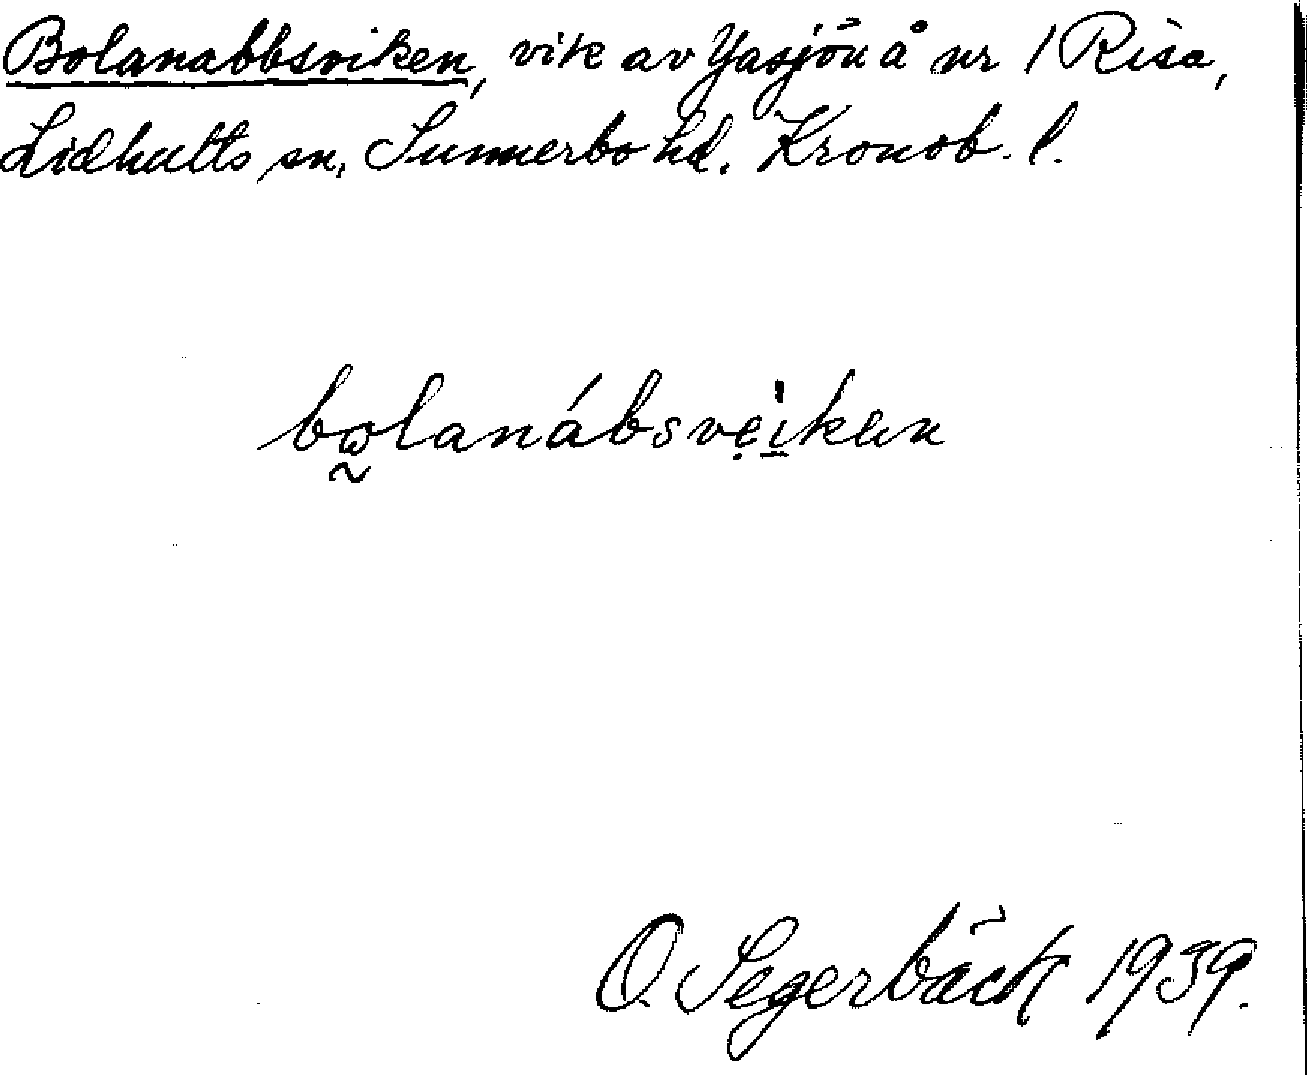 Bolanabbsviken, vik av Yasjön å nr 1 Risa,
Lidhults sn, Sunnerbo hd. Kronob. l.
bo̰lanábsvẹi̱ken
O. Segerbäck 1939.